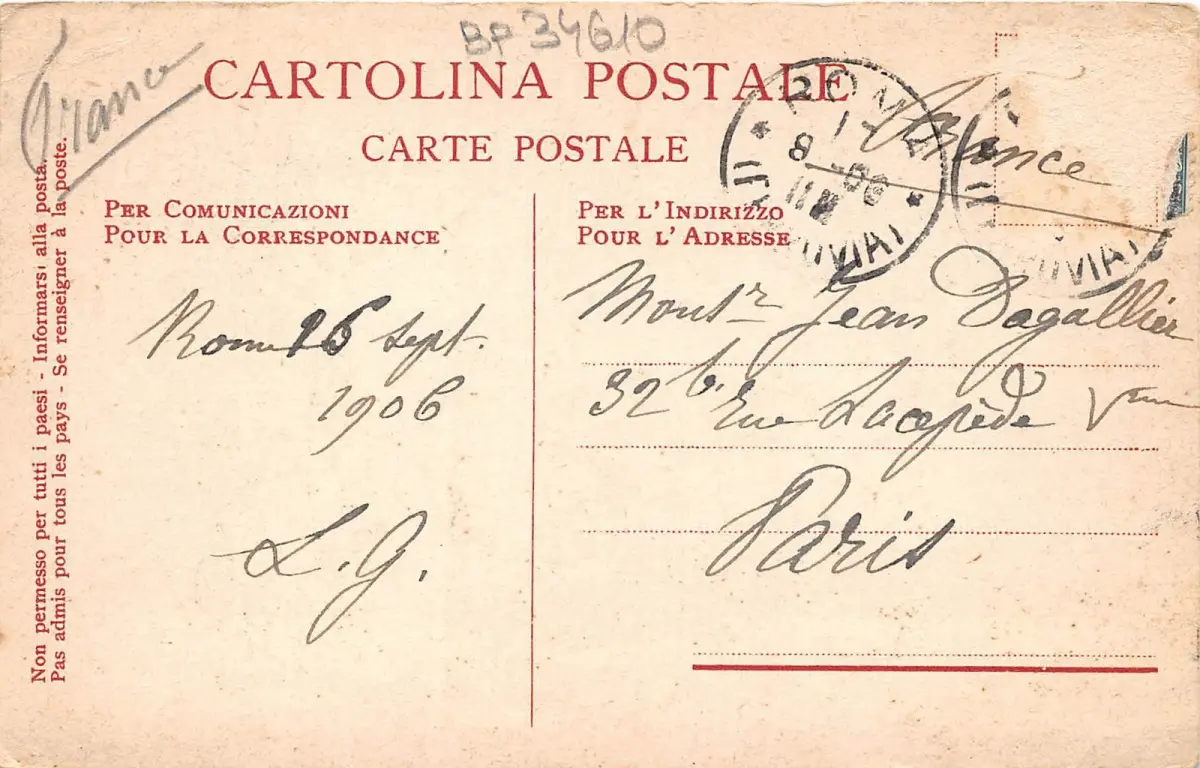 BP 34610
France
CARTOLINA POSTALE
CARTE POSTALE
France
Non permesso per tutti i paesi - Informarsi alla posta.
Pas admis pour tous les pays - Se renseigner à la poste.
PER COMUNICAZIONI
POUR LA CORRESPONDANCE
PER L'INDIRIZZO
POUR L'ADRESSE
ROMA
8
06
Rome 16 sept.
1906
L. G.
Monsr Jean Dagallier
32 b. rue Lacepède V
Paris